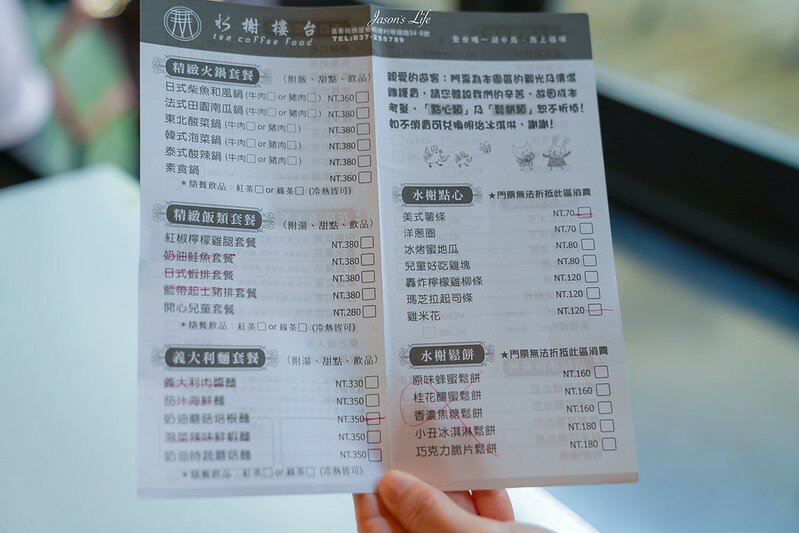 Jason's Life
水榭樓台
tea coffee food
TEL:037-255789
全台唯一湖中島,島上咖啡
精緻火鍋套餐 (附飯、甜點、飲品)
日式柴魚和風鍋(牛肉□ or 豬肉□) NT.360□
法式田園南瓜鍋(牛肉□ or 豬肉□) NT.380□
東北酸菜鍋(牛肉□ or 豬肉□) NT.380□
韓式泡菜鍋(牛肉□ or 豬肉□) NT.380□
泰式酸辣鍋(牛肉□ or 豬肉□) NT.380□
素食鍋 NT.360□
*隨餐飲品:紅茶□ or 綠茶□ (冷熱皆可)
精緻飯類套餐 (附湯、甜點、飲品)
紅椒檸檬雞腿套餐 NT.380□
奶油鮭魚套餐 NT.380□
日式蝦排套餐 NT.380□
藍帶起士豬排套餐 NT.380□
開心兒童套餐 NT.280□
*隨餐飲品:紅茶□ or 綠茶□ (冷熱皆可)
義大利麵套餐 (附湯、甜點、飲品)
義大利肉醬麵 NT.330□
茄汁海鮮麵 NT.350□
奶油蘑菇培根麵 NT.350□
泡菜辣味鮮蝦麵 NT.350□
奶油時蔬蘑菇麵 NT.350□
*隨餐飲品:紅茶□ or 綠茶□ (冷熱皆可)
親愛的遊客:門票為本園區的觀光及清潔
維護費,請您體諒我們的辛苦,故因成本
考量,「點心類」及「鬆餅類」恕不折抵!
如不消費可兌換明治冰淇淋,謝謝!
水榭點心 ★門票無法折抵此區消費
美式薯條 NT.70□
洋蔥圈 NT.70□
冰烤蜜地瓜 NT.80□
兒童好吃雞塊 NT.80□
轟炸檸檬雞柳條 NT.120□
瑪芝拉起司條 NT.120□
雞米花 NT.120□
水榭鬆餅 ★門票無法折抵此區消費
原味蜂蜜鬆餅 NT.160□
桂花釀蜜鬆餅 NT.160□
香濃焦糖鬆餅 NT.160□
小丑冰淇淋鬆餅 NT.180□
巧克力脆片鬆餅 NT.180□